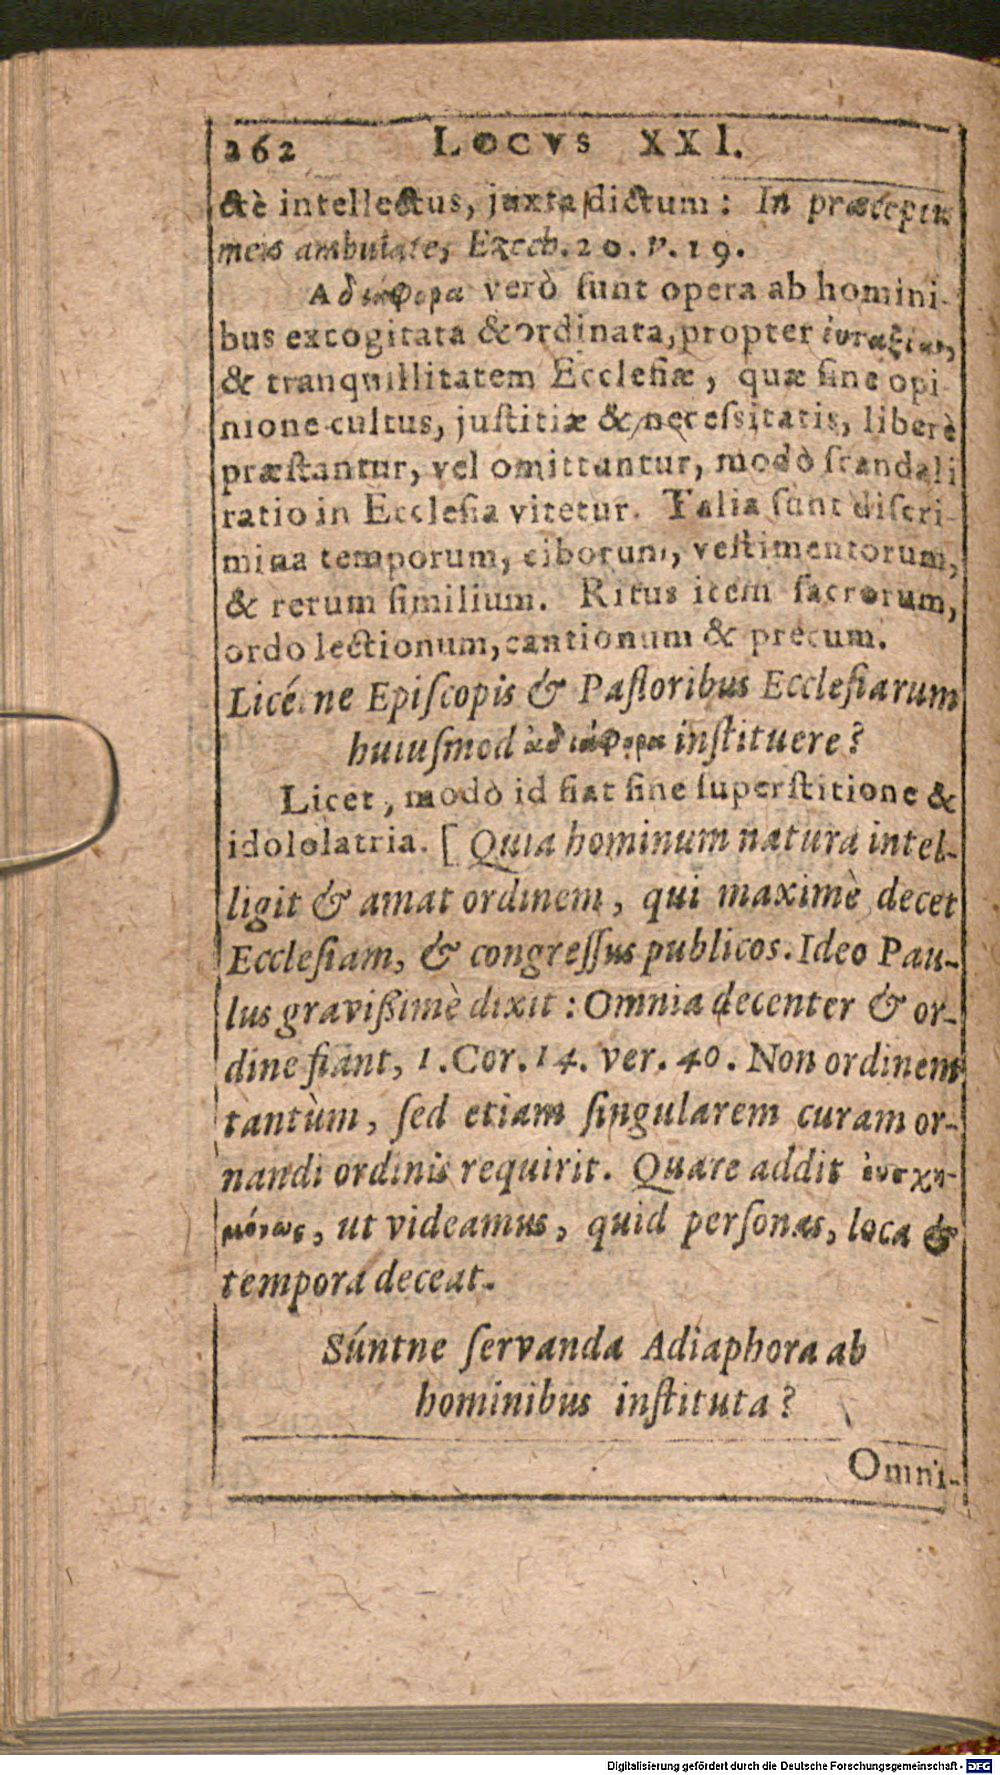 262 LOCVS XXI.
ctè intellectus, juxta dictum: In præceptis
meis ambulate, Ezech. 20. v. 19.
Αδιάφορα verò ſunt opera ab homini-
bus excogitata & ordinata, propter ἐυταξίαν,
& tranquillitatem Eccleſiæ, quæ ſine opi-
nione cultus, juſtitiæ & neceſsitatis, liberè
præſtantur, vel omittuntur, modò ſcandali
ratio in Eccleſia vitetur. Talia ſunt diſcri-
mina temporum, ciborum, veſtimentorum,
& rerum ſimilium. Ritus item ſacrorum,
ordo lectionum, cantionum & precum.
Licétne Epiſcopis & Paſtoribus Eccleſiarum
huiuſmod ἀδιάφορα inſtituere?
Licet, modò id fiat ſine ſuperſtitione &
idololatria. [Quia hominum natura intel-
ligit & amat ordinem, qui maximè decet
Eccleſiam, & congreſſus publicos. Ideo Pau-
lus gravißimè dixit: Omnia decenter & or-
dine fiant, 1. Cor. 14. ver. 40. Non ordinem
tantùm, ſed etiam ſingularem curam or-
nandi ordinis requirit. Quare addit ἐυσχη-
μόνως, ut videamus, quid perſonas, loca &
tempora deceat.
Súntne ſervanda Adiaphora ab
hominibus inſtituta?
Omni-
Digitalisierung gefördert durch die Deutsche Forschungsgemeinschaft - DFG